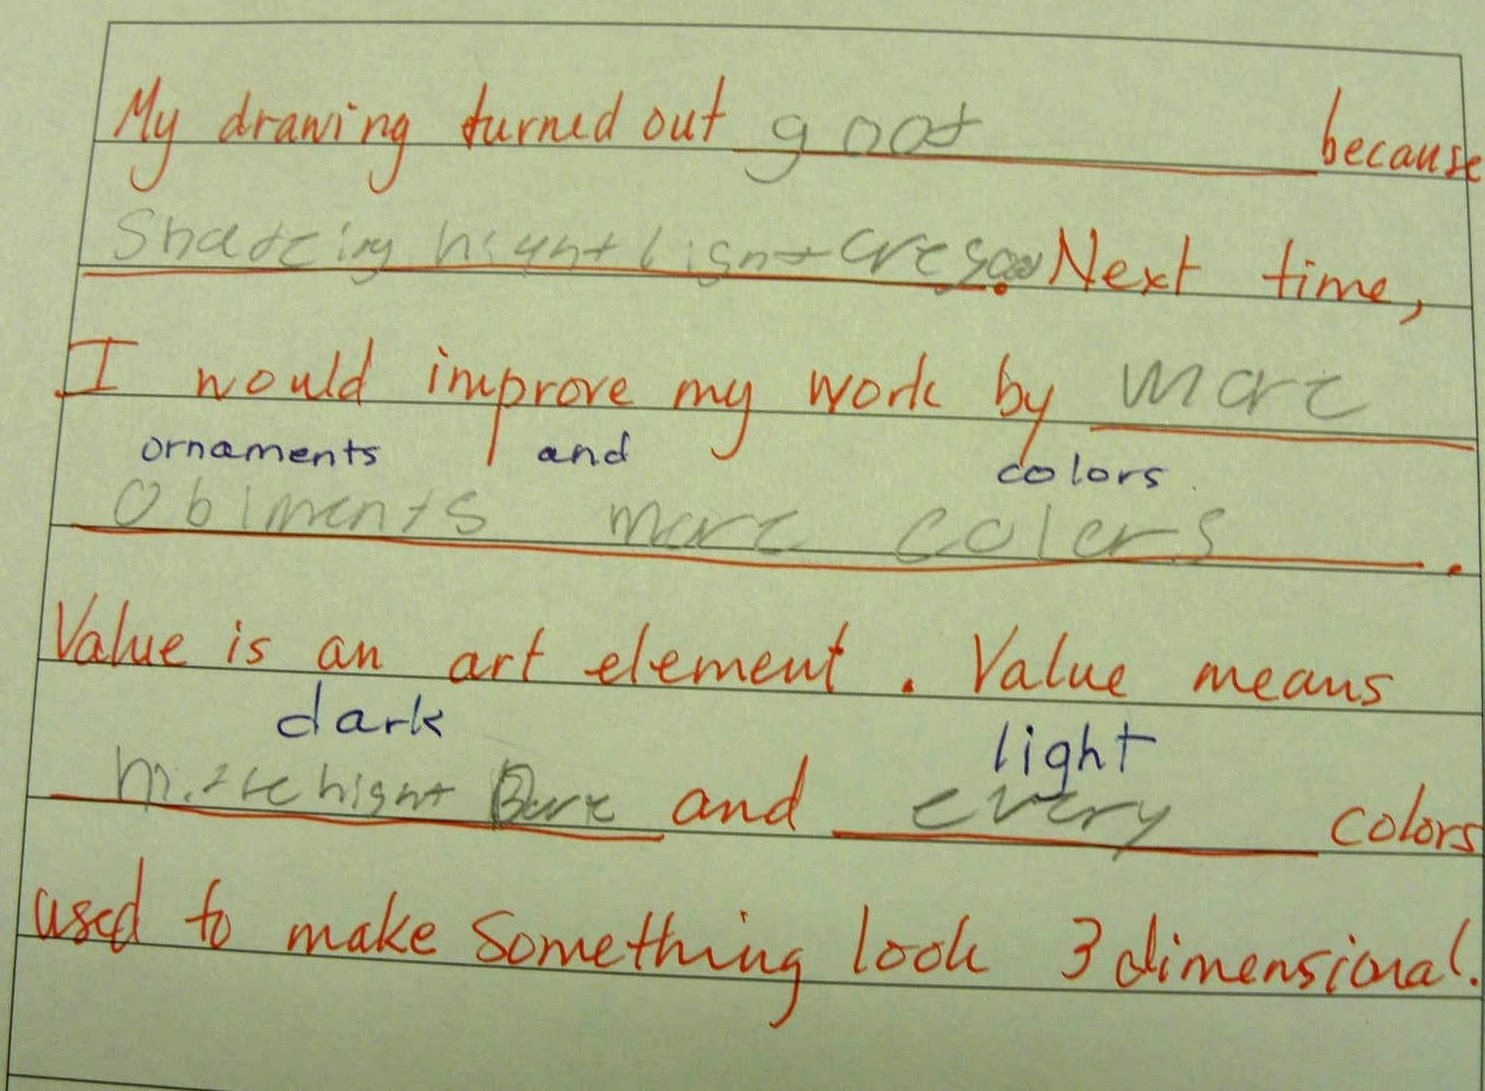 My drawing turned out goot because
hight light Next time,
I would improve my work by more
ornaments and colors
Obiments more colers .
Value is an art element. Value means
dark light
hight and every colors
used to make something look 3 dimensional.